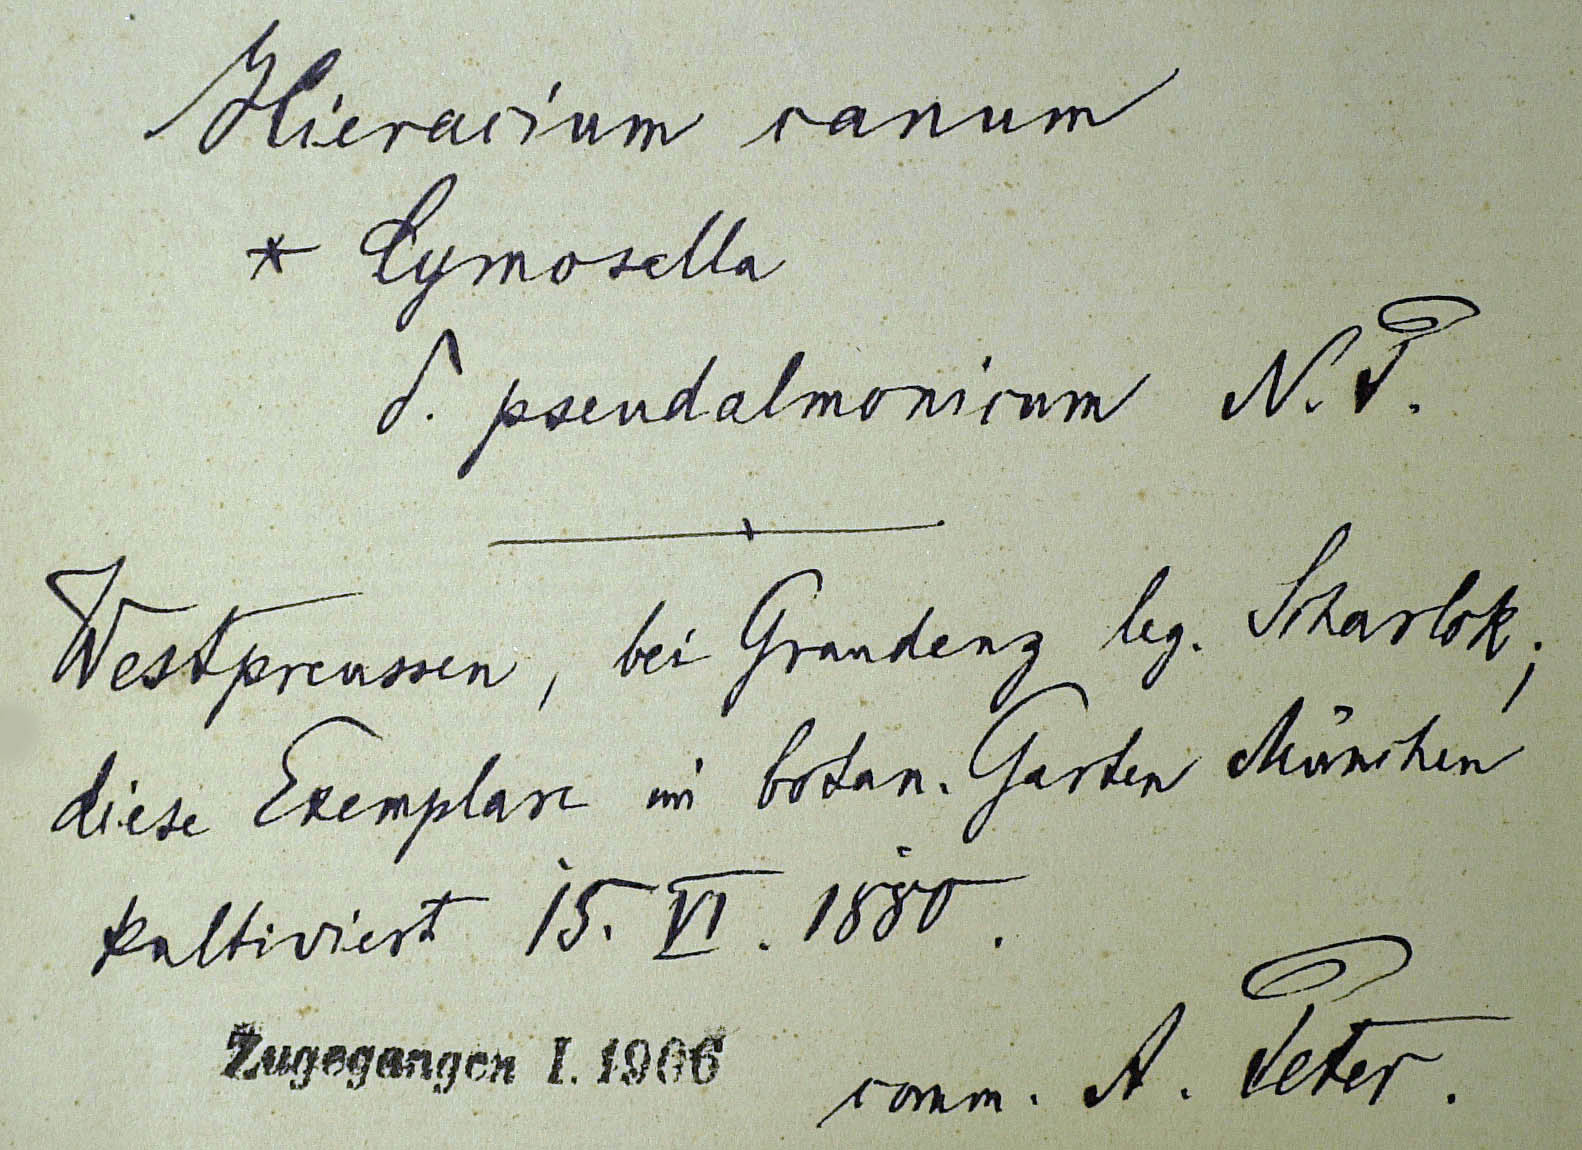 Hieracium canum
* Cymosella
δ. pseudalmonicum N. P.
Westpreussen, bei Graudenz leg. Scharlok;
diese Exemplare im botan. Garten München
kultiviert 15. VI. 1880.
Zugegangen I. 1906
comm. A. Peter.